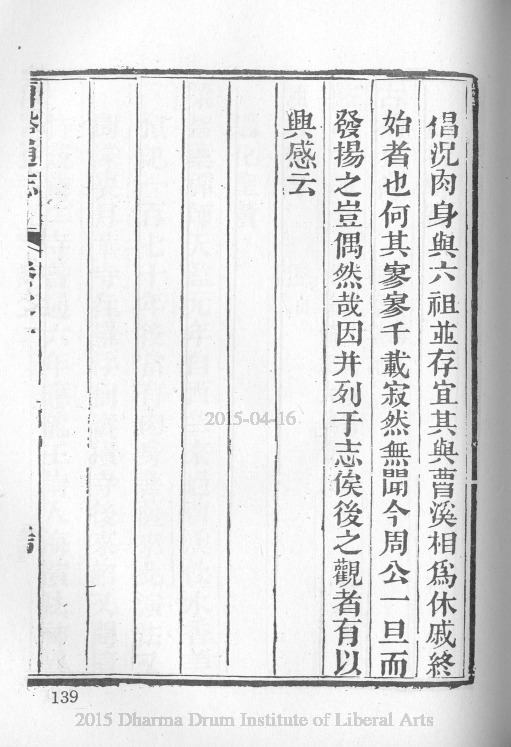 倡況肉身與六祖並存宜其與曹溪相爲休戚終
始者也何其寥寥千載寂然無聞今周公一旦而
發揚之豈偶然哉因并列于志俟後之觀者有以
興感云
通志
卷之
139
2015-04-16
2015 Dharma Drum Institute of Liberal Arts